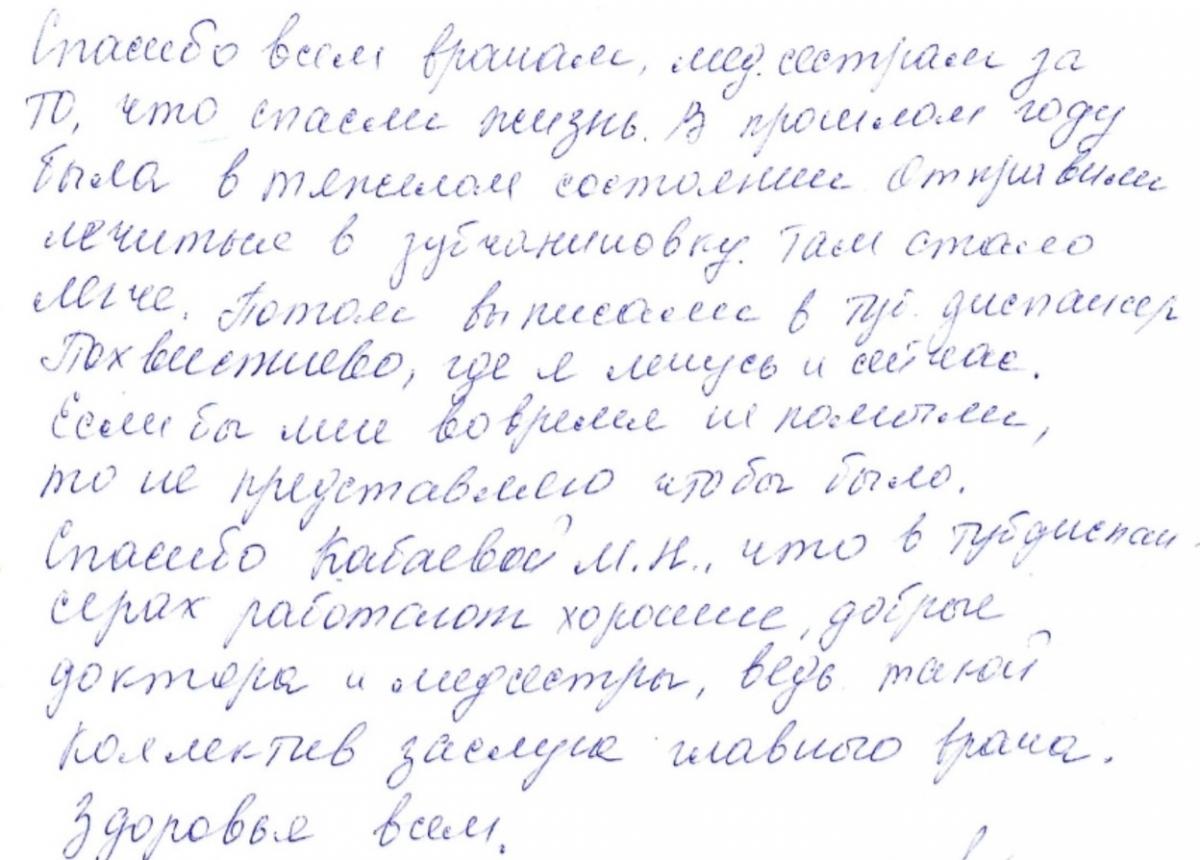 Спасибо всем врачам, мед. сестрам за
то, что спасли жизнь. В прошлом году
была в тяжелом состоянии. Отправили
лечиться в зубчаниновку. Там стало
легче. Потом выписали в туб. диспансер
Похвистнево, где я лечусь и сейчас.
Если бы мне вовремя не помогли,
то не представляю чтобы было.
Спасибо Кабаевой М.Н., что в тубдиспан-
серах работают хорошие, добрые
доктора и медсестры, ведь такой
коллектив заслуга главного врача.
Здоровья всем.